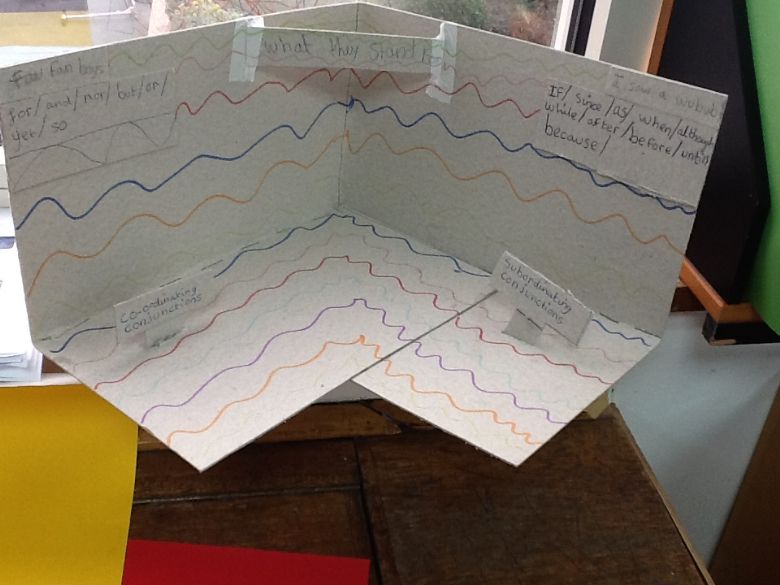 What they stand for
Fan boys
for/ and/ nor/ but/ or/
yet/ so
I saw a wabub
If/ since/ as/ when/ although
while/ after/ before/ until/
because/
Co-ordinating
conjunctions
Subordinating
conjunctions